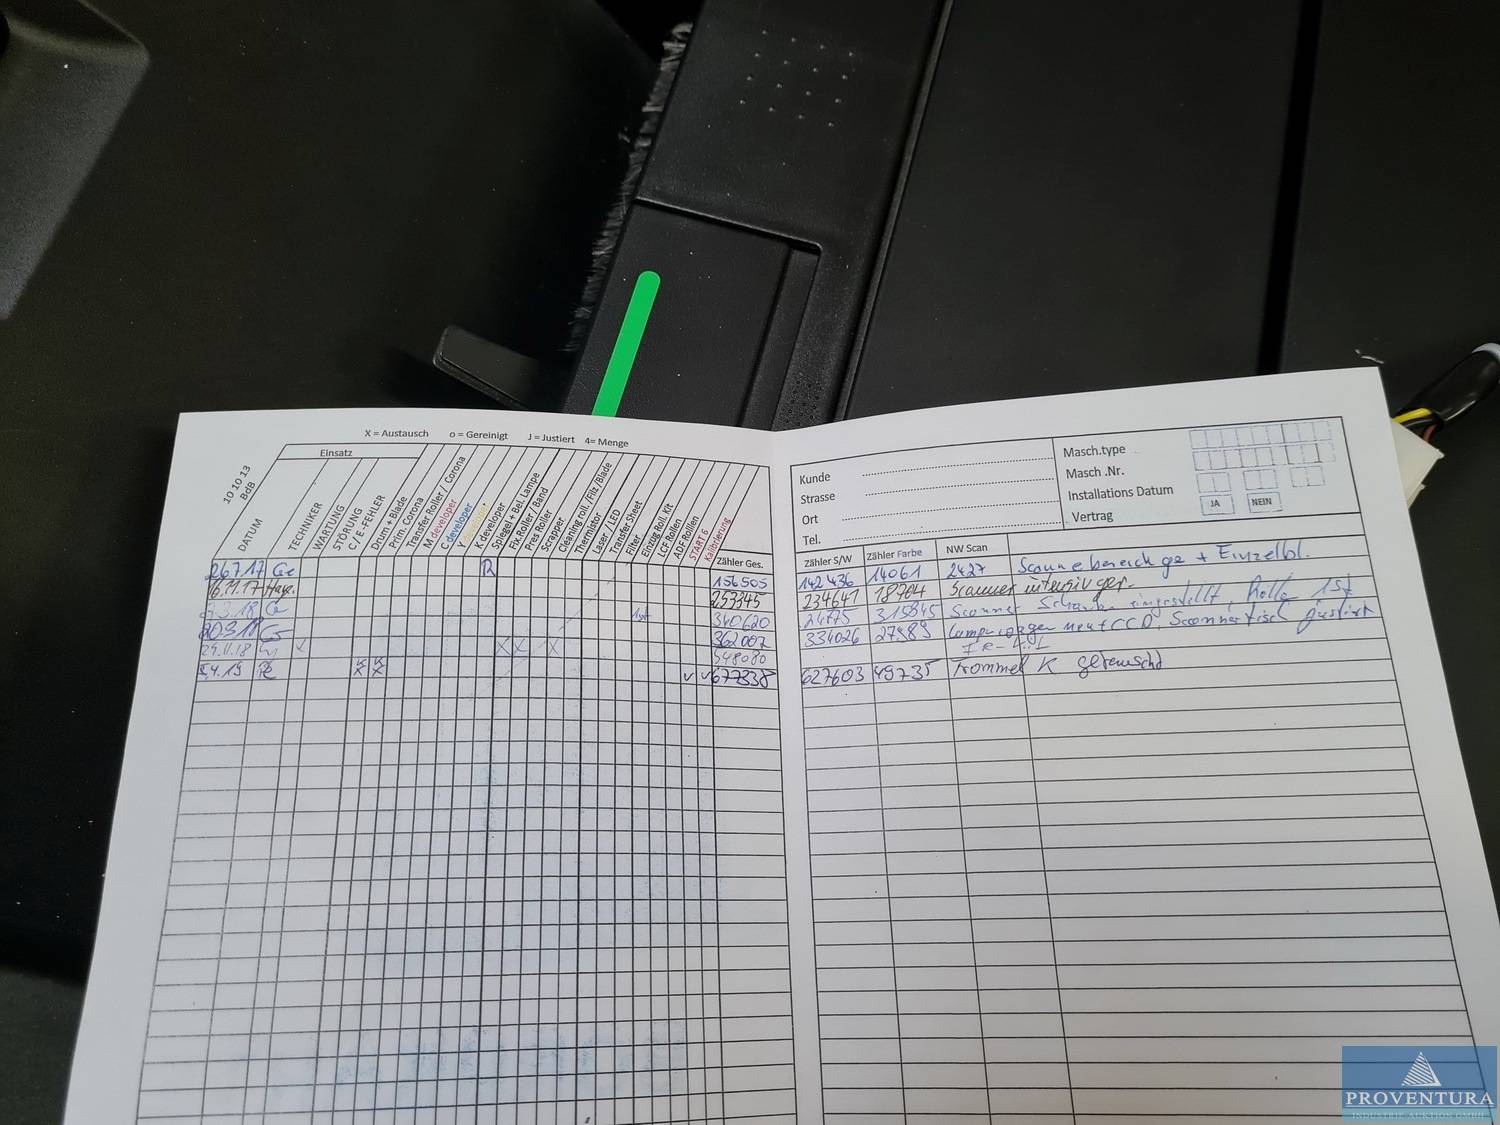 X = Austausch o = Gereinigt J = Justiert 4= Menge
Einsatz
10 10 13
BdB
DATUM
TECHNIKER
WARTUNG
STÖRUNG
C / E-FEHLER
Drum + Blade
Prim. Corona
Transfer Roller / Corona
M developer
C developer
Y
K developer
Spiegel + Bel. Lampe
Fix Roller / Band
Pres Roller
Scrapper
Cleaning roll. / Filz /Blade
Thermistor
Laser / LED
Transfer Sheet
Filter
Einzug Roll. Kit
LCF Rollen
ADF Rollen
START 6
Kalibrierung
Zähler Ges.
26.7.17 Ge 156505
16.11.17 253345
340620
20.3.18 362007
29.11.18 548080
5.4.19 677338
Kunde
Strasse
Ort
Tel.
Masch.type
Masch .Nr.
Installations Datum
Vertrag
JA NEIN
Zähler S/W Zähler Farbe NW Scan
142436 14061 2427 + Einzelbl.
234641 18704 Scanner intensiv ger.
24775 315845 Scanner eingestellt, Rolle 1st
334026 27989 neut CCD, Scannertisch justiert
627603 49735 Trommel K getauscht
PROVENTURA
INDUSTRIE-AUKTION GMBH